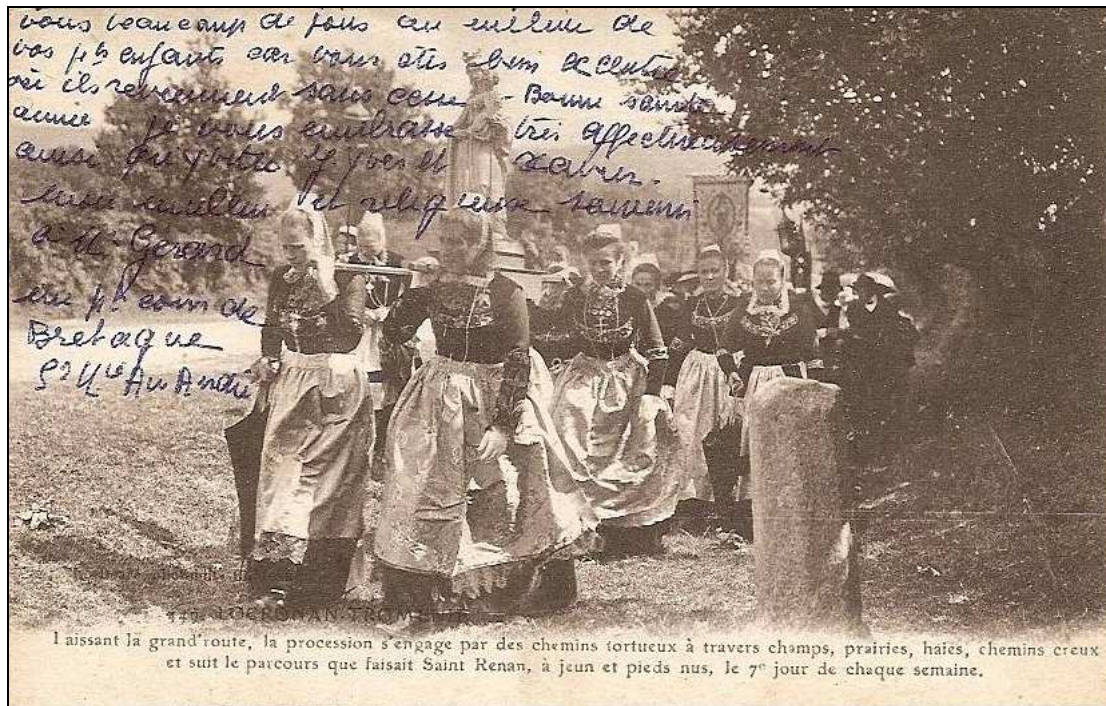 vous beaucoup de jours au milieu de
vos pts enfants car vous êtes bien
ils reviennent sans cesse - Bonne santé
année je vous embrasse très affectueusement
ainsi qu'yvette Yves et
mon meilleur et religieux souvenir
à Gérard
un pt coin de
Bretagne
LOCRONAN
Laissant la grand'route, la procession s'engage par des chemins tortueux à travers champs, prairies, haies, chemins creux
et suit le parcours que faisait Saint Renan, à jeun et pieds nus, le 7e jour de chaque semaine.